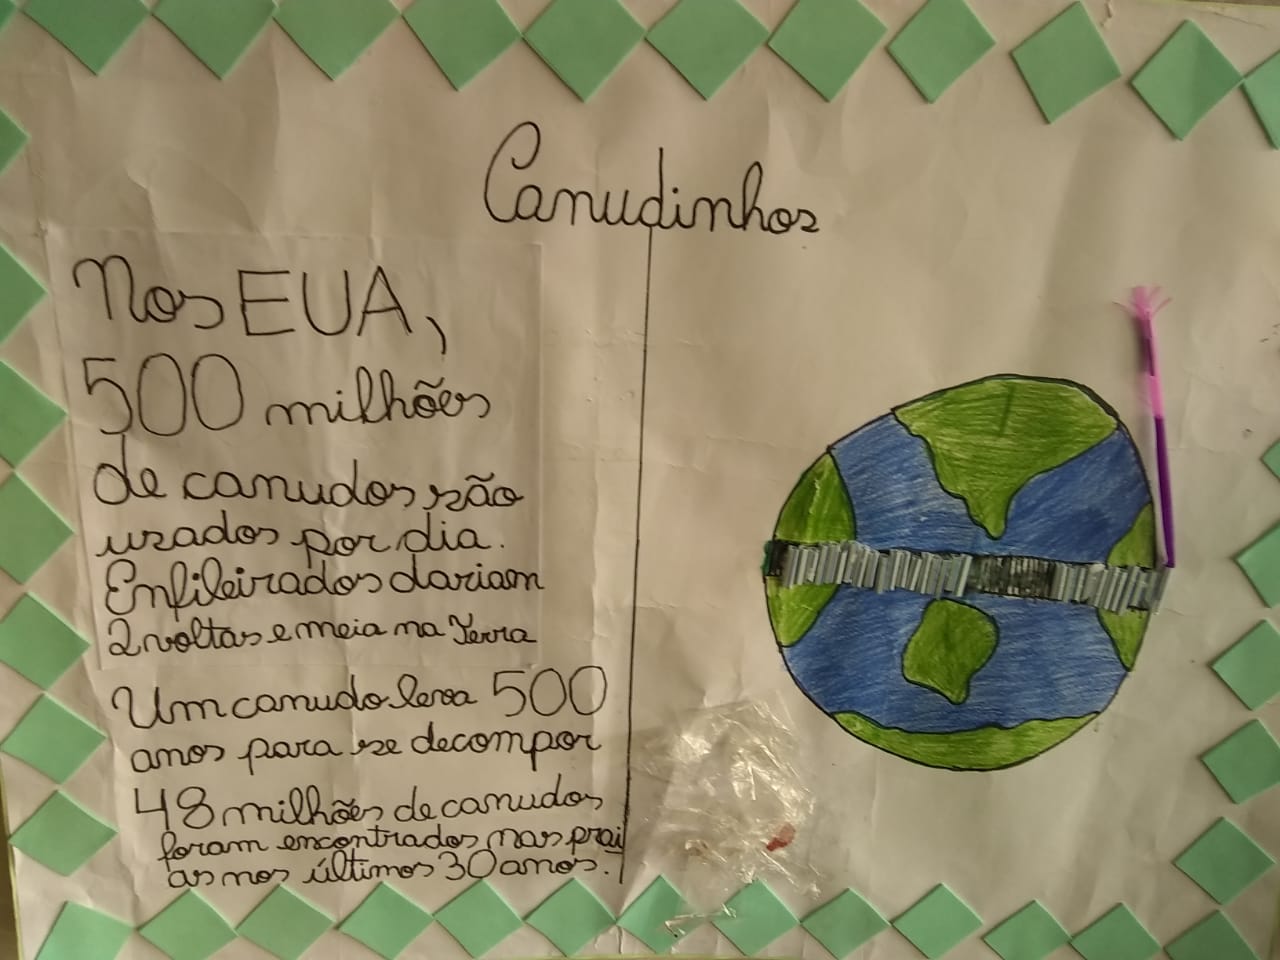 Canudinhos
Nos EUA,
500 milhões
de canudos são
usados por dia.
Enfileirados dariam
2 voltas e meia na Terra
Um canudo leva 500
anos para se decompor
48 milhões de canudos
foram encontrados nas prai
as nos últimos 30 anos.